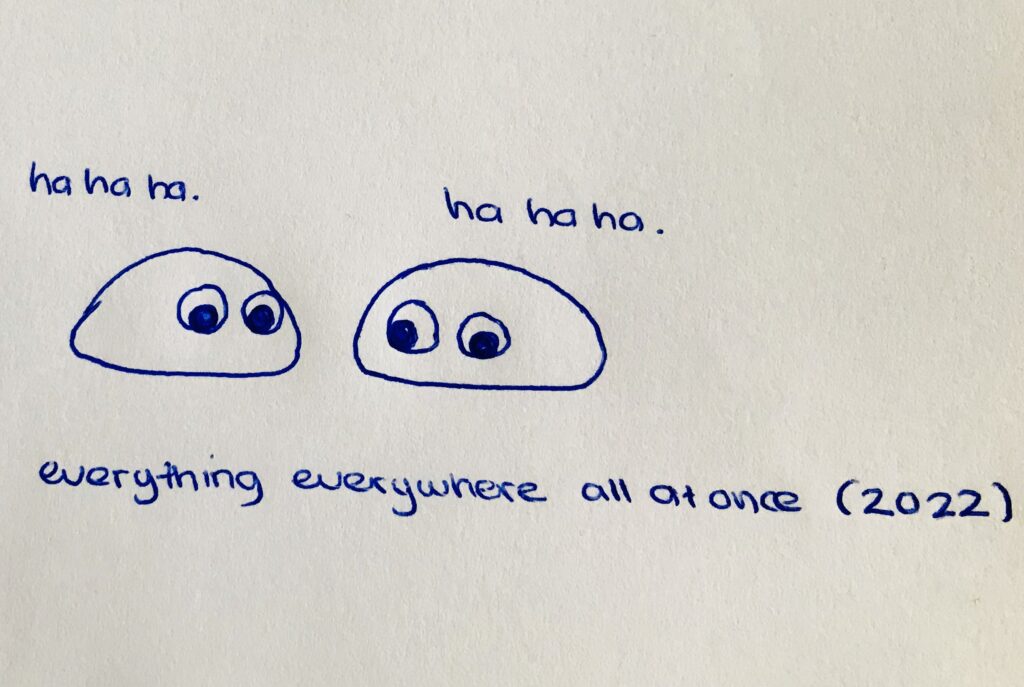 ha ha ha.
ha ha ha.
everything everywhere all at once (2022)